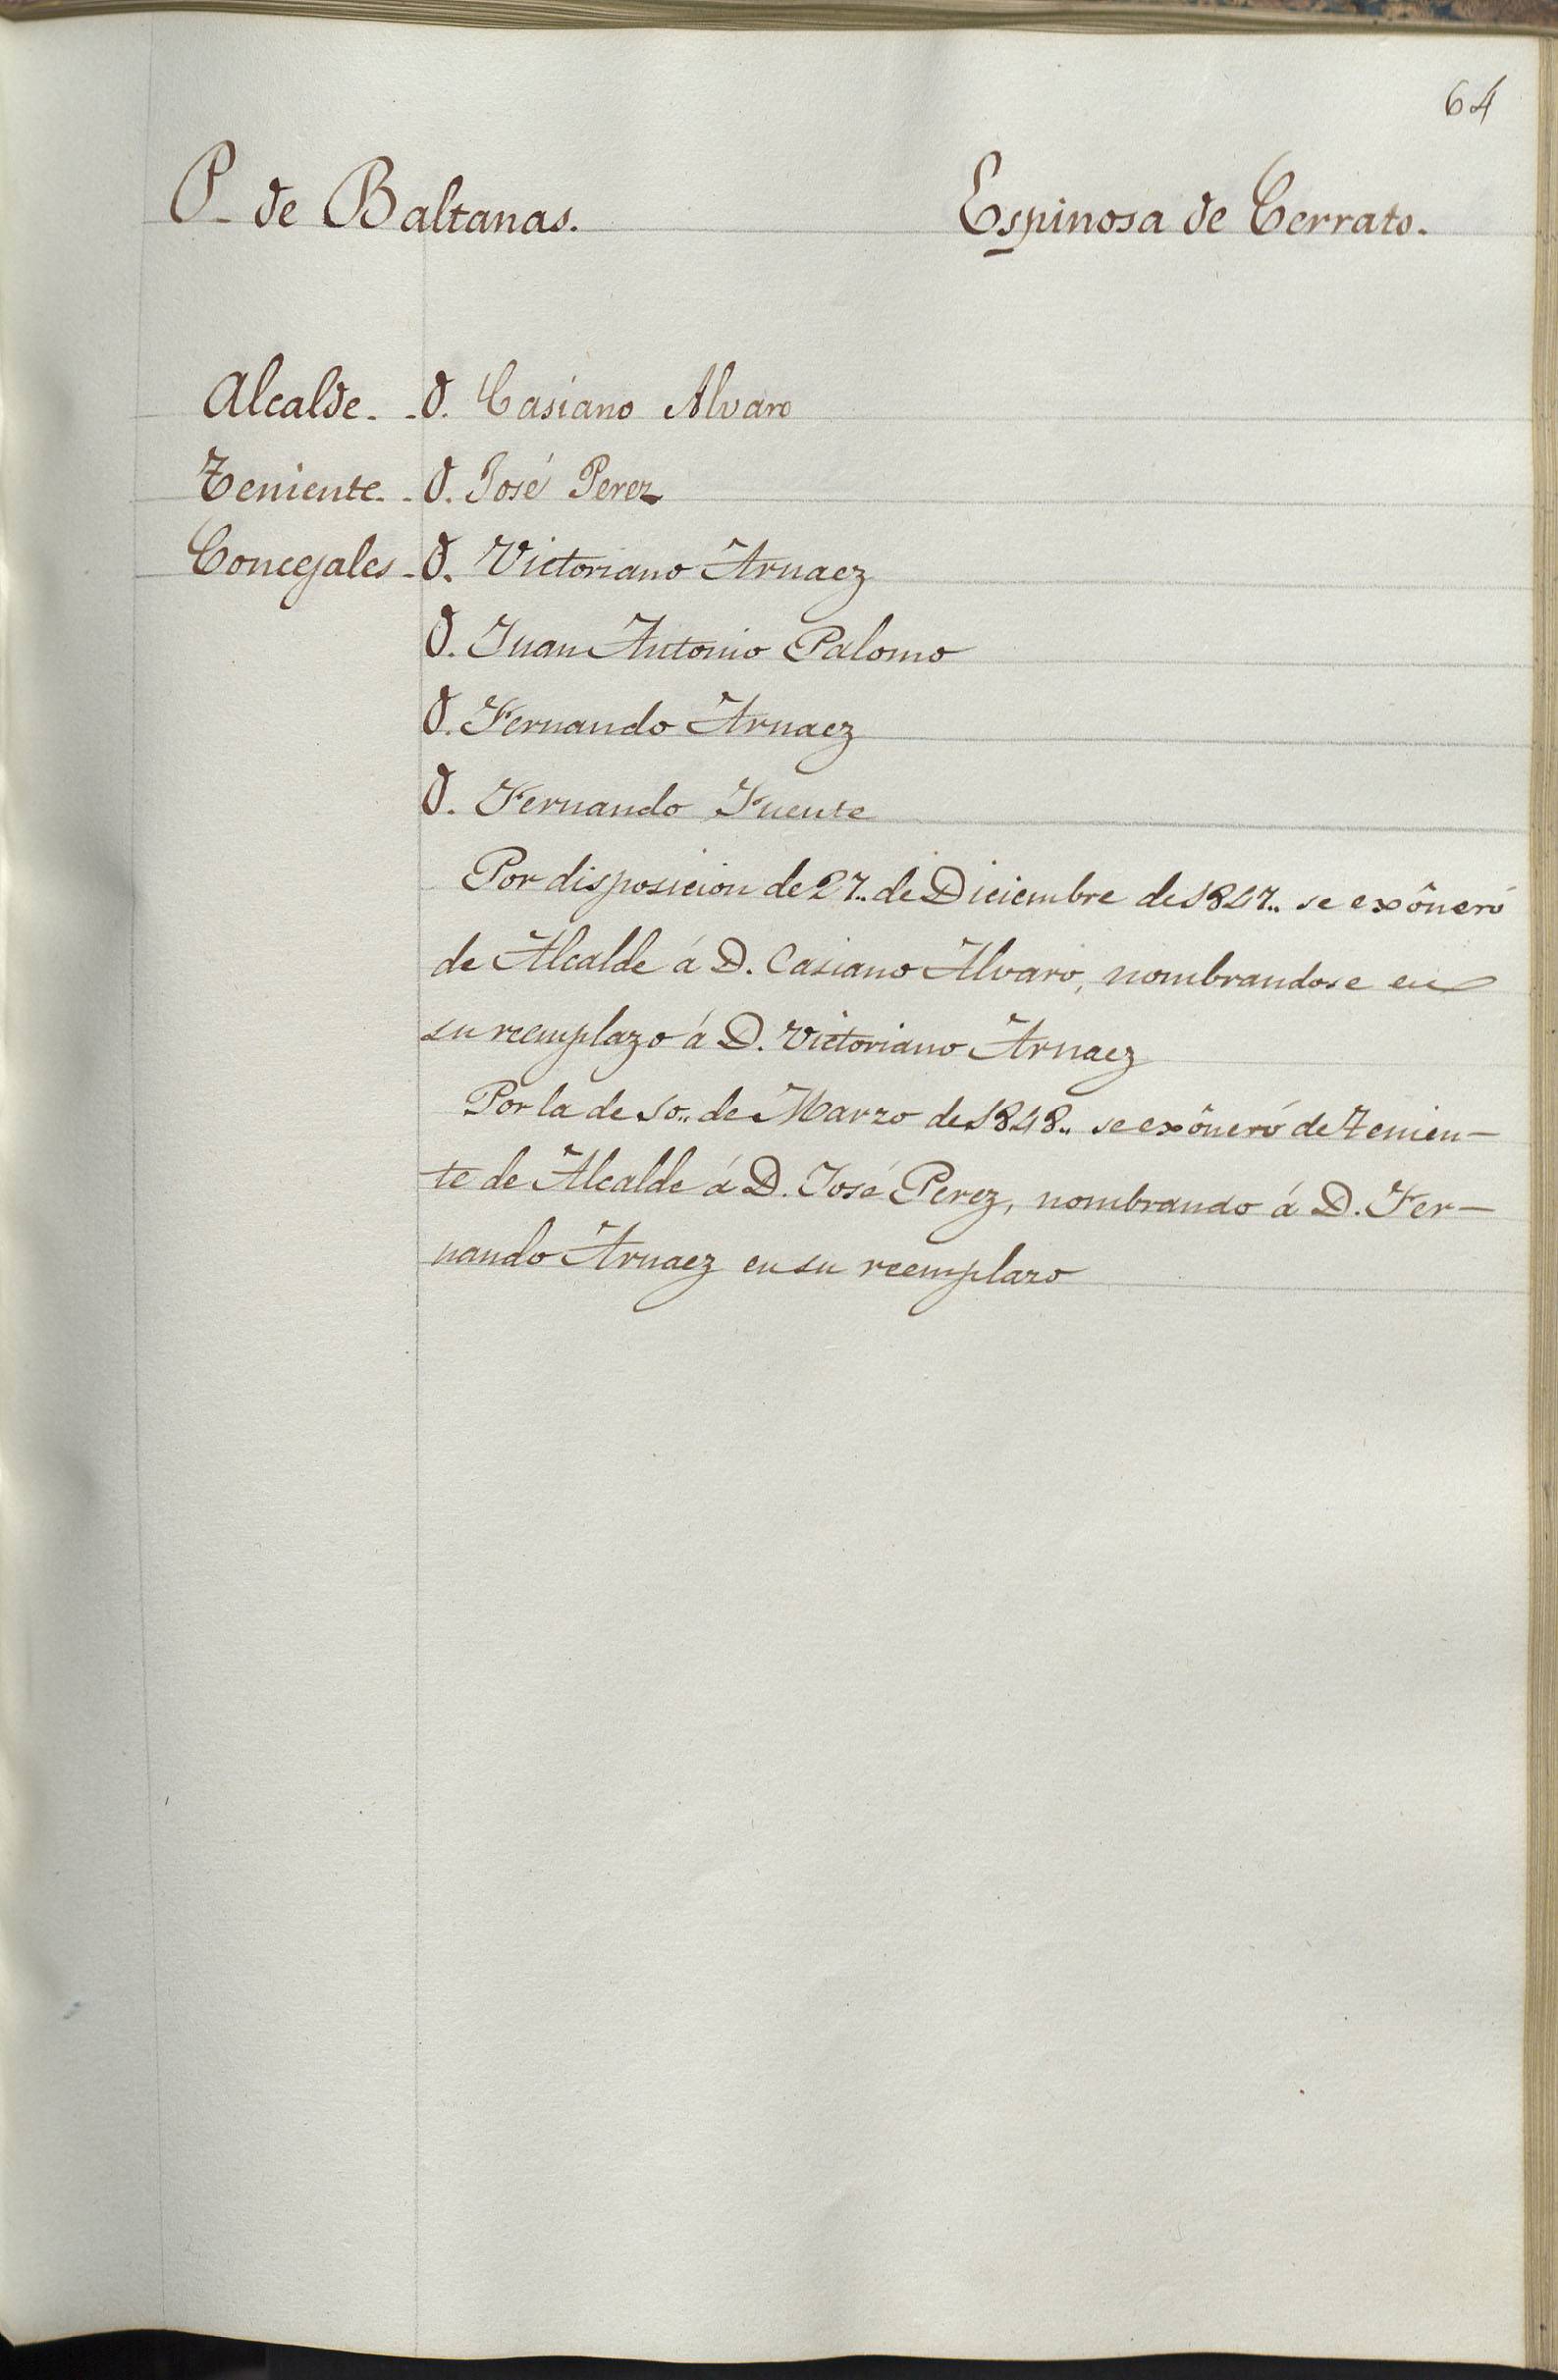 64
P. de Baltanas. Espinosa de Cerrato.
Alcalde - D. Casiano Alvaro
Teniente - D. José Perez
Concejales - D. Victoriano Arnaez
D. Juan Antonio Palomo
D. Fernando Arnaez
D. Fernando Fuente
Por disposicion de 27.. de Diciembre de 1847.. se exôneró
de Alcalde á D. Casiano Alvaro, nombrandose en
su reemplazo á D. Victoriano Arnaez
Por la de 10.. de Marzo de 1848.. se exôneró de Tenien-
te de Alcalde á D. José Perez, nombrando á D. Fer-
nando Arnaez en su reemplazo